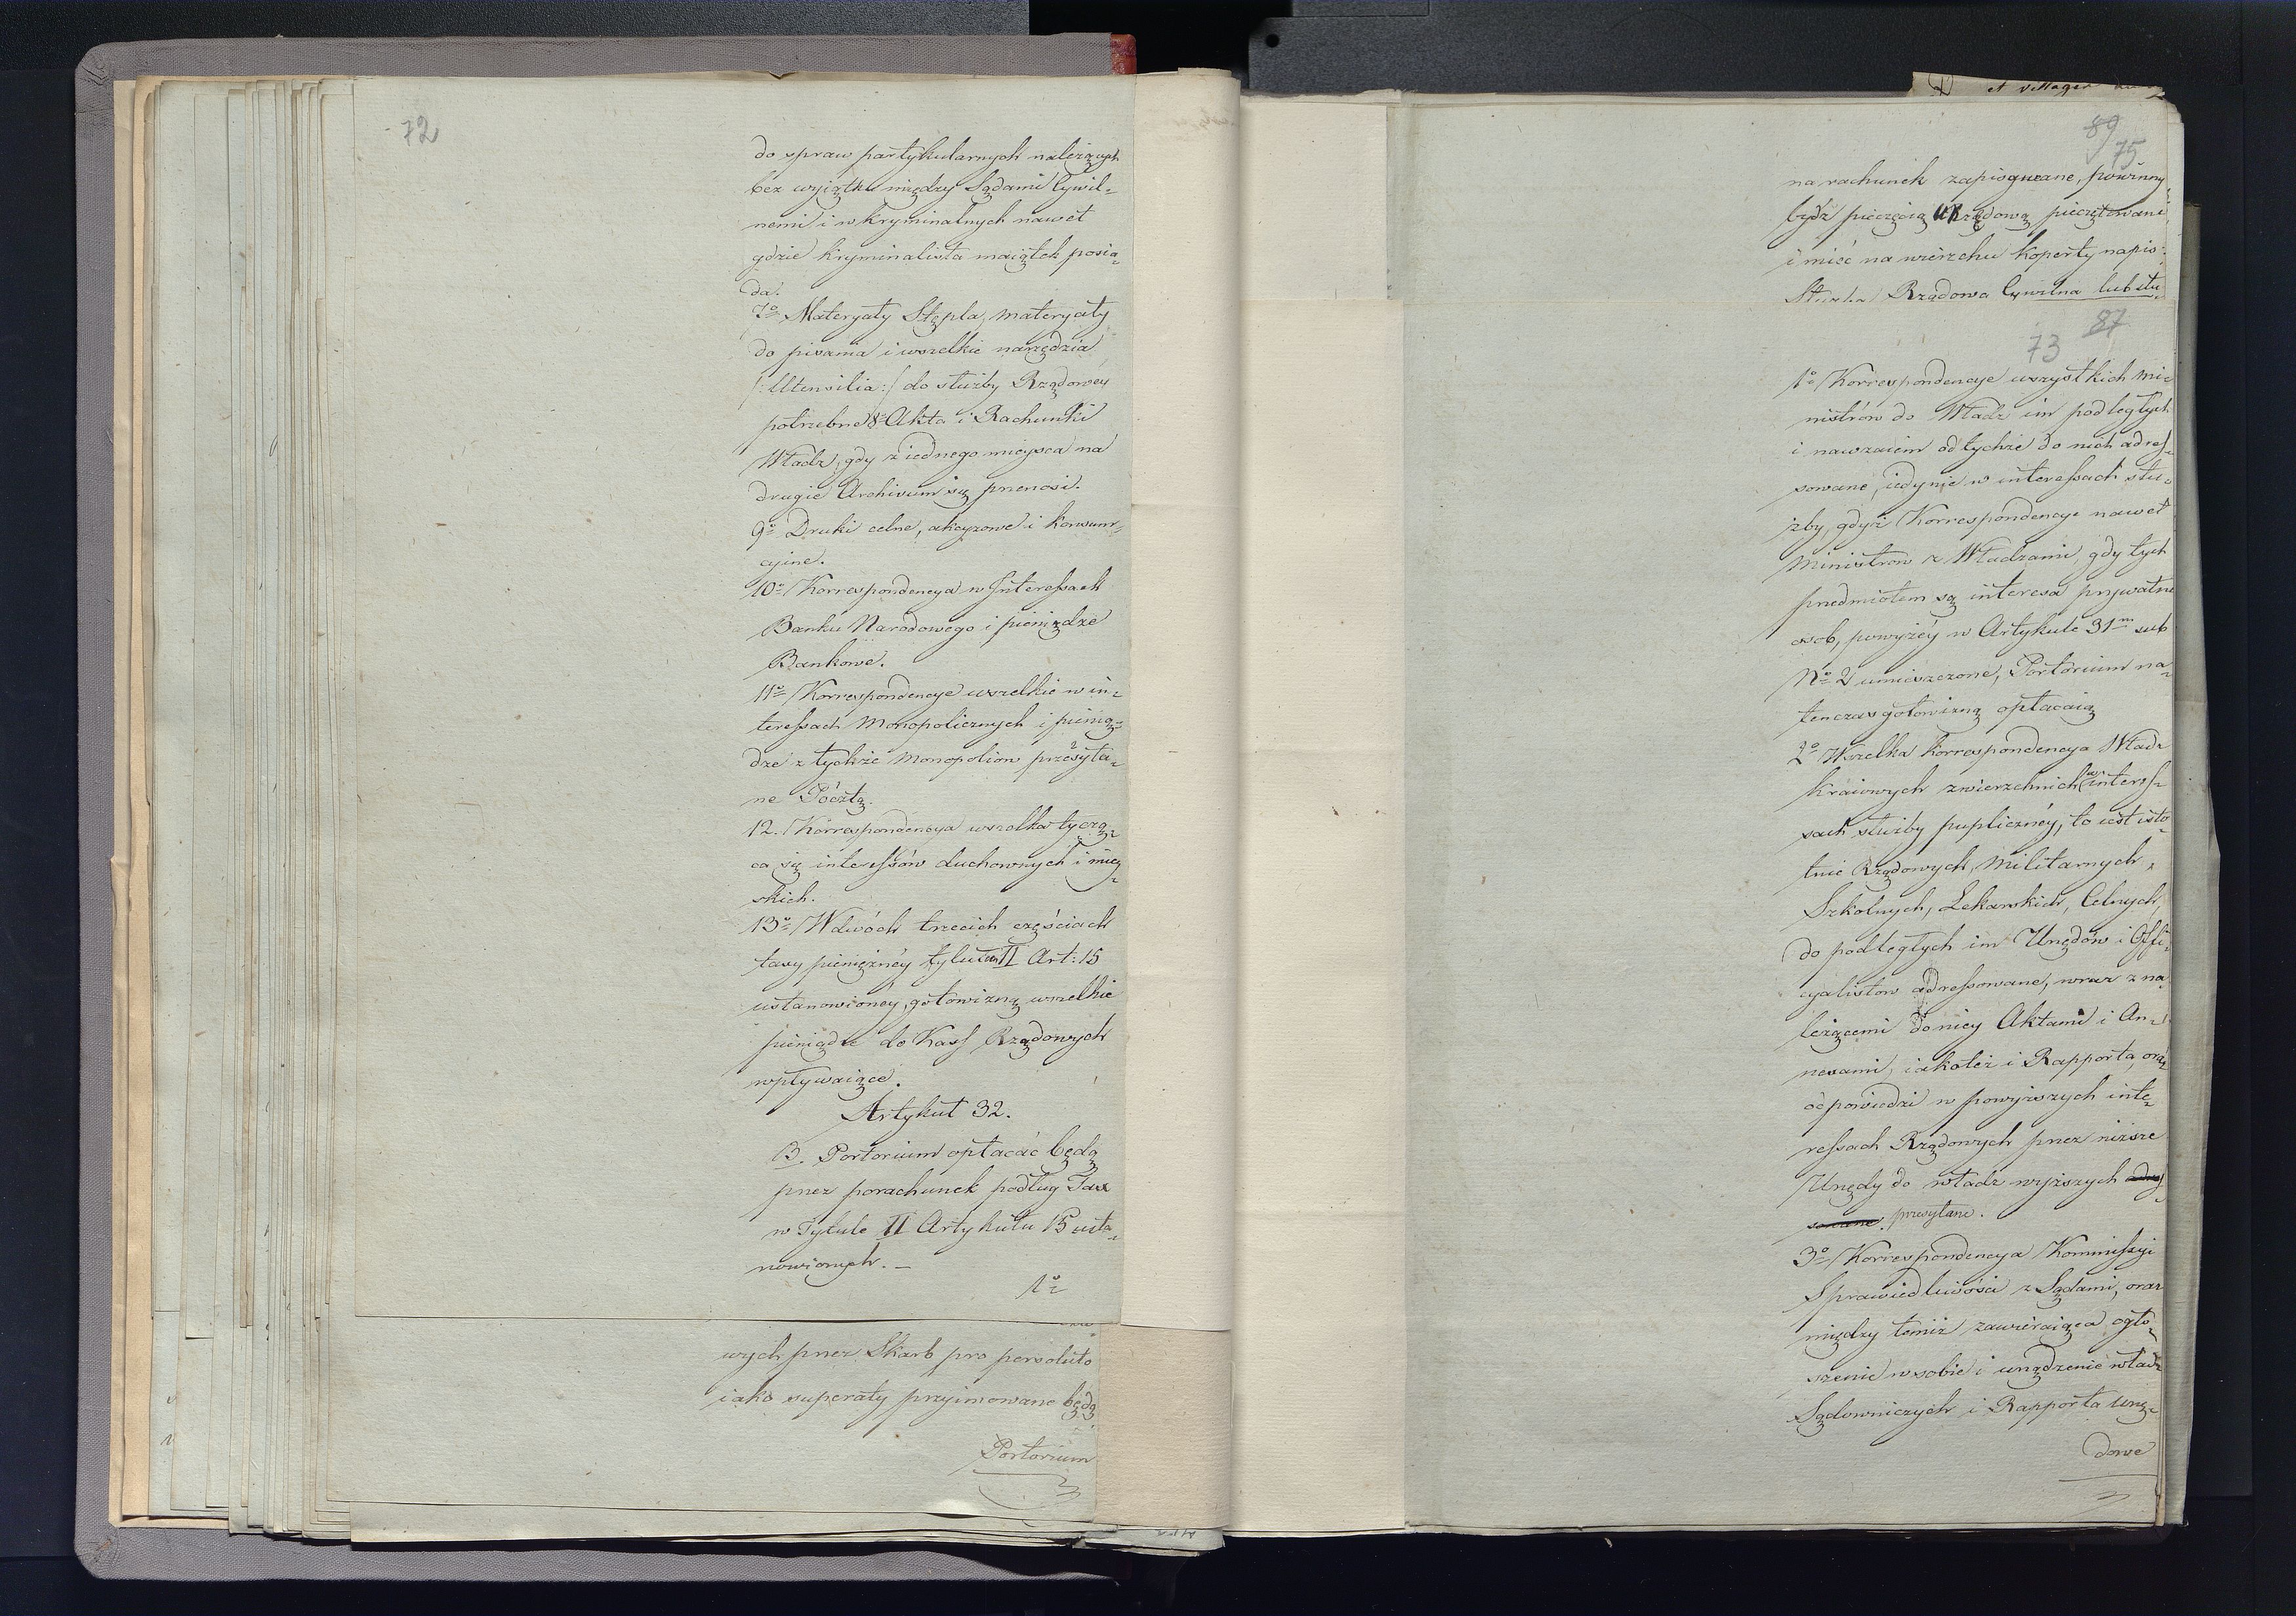 72
do spraw partykularnych należących
bez wyiątku między Sądami Cywil-
nemi i w kryminalnych nawet
gdzie kryminalista maiątek posia-
da.
7º Materyały Stępla, materyały
do pisania i wszelkie narzędzia
/:Utensilia:/ do służby Rządowéy
potrzebne 8º Akta i Rachunki
Władz, gdy z iednego mieysca na
drugie Archivum się przenosi.
9º Druki celne, akcyzowe i konsum-
cyine.
10º Korrespondencya w Interessach
Banku Narodowego i pieniądze
Bankowe.
11º Korrespondencye wszelkie w in-
teressach Monopolicznych i pienią-
dze z tychże Monopoliow przesyła-
ne Pocztą.
12. Korrespondencya wszelka tyczą-
ca się interessów duchownych i miey-
skich.
13º W dwóch trzecich częściach
taxy pieniężnéy tytułem II Art: 15
ustanowionéy, gotowizną wszelkie
pieniądze do Kass Rządowych
wpływaiące.
Artykuł 32.
B. Portorium opłacać będą
przez porachunek podług Tax
w Tytule II Artykułu 15 usta-
nowionych. –
1º
wych przez Skarb pro persoluto
iako superaty przyimowane będą.
Portorium
et villages
89
75
na rachunek zapisywane, powinny
bydź pieczęcią Urzędową pieczętowane
i mieć na wierzchu koperty napis:
Służba Rządowa Cywilna lub słu-
87
73
1º Korrespondencye wszystkich Mi-
nistrów do Władz im podległych
i nawzaiem od tychże do nich adres-
sowane, iedynie w interessach słu-
żby, gdyż Korrespondencye nawet
Ministrow z Władzami, gdy tych
przedmiotem są interesa prywatne
osob, powyżéy w Artykule 31m sub
Nº 2 umieszczone, Portorium na-
tenczas gotowizną opłacaią
2º Wszelka Korrespondencya Władz
kraiowych zwierzchnich w interes-
sach służby pupliczney, to iest isto-
tnie Rządowych, Militarnych,
Szkolnych, Lekarskich, Celnych,
do podległych im Urzędów i Offi-
cyalistow adressowane, wraz z na-
leżącemi do niey Aktami i An-
nexami, iakoteż i Rapporta, oraz
odpowiedzi w powyższych inte-
ressach Rządowych przez niższe
Urzędy do władz wyższych adres-
sowane. przesyłane.
3º Korrespondencya Kommissyi
Sprawiedliwości z Sądami, oraz
między temiż zawieraiąca ogło-
szenie w sobie i urządzenie władz
Sądowniczych i Rapporta urzę-
dowe